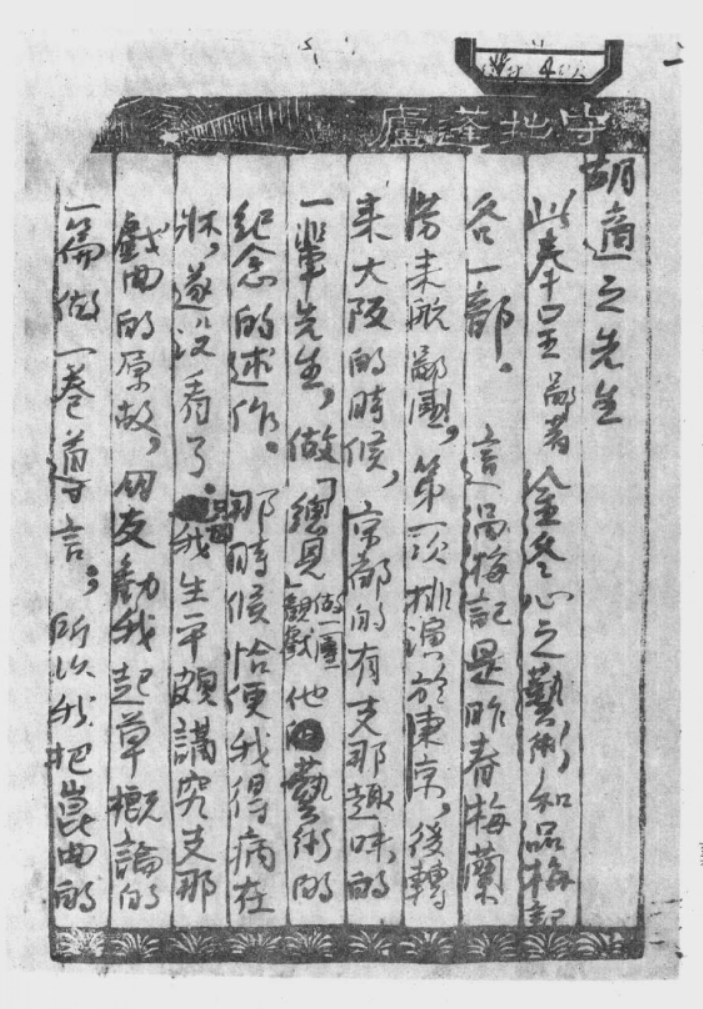 守拙蓬廬
胡適之先生
此奉呈鄙著金冬心之藝術,和品梅記
各一部。這過梅記是昨春梅蘭
芳來航鄙國,第一次排演於東京,後轉
來大阪的時候,京都的有支那趣味的
一輩先生,做「總見」做一團觀戲他的藝術的
紀念的述作。那時候恰便我得病在
牀,遂沒看了。只因我生平頗講究支那
戲曲的原故,朋友勸我起草概論的
一篇做一卷導言。所以我把崑曲的